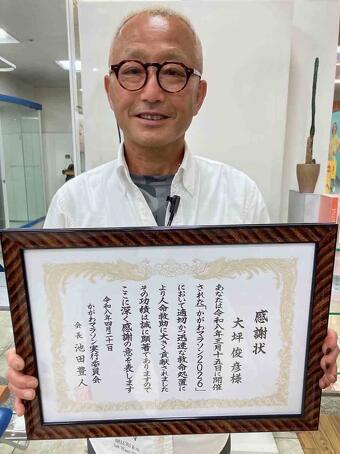 感謝状
大坪俊彦様
あなたは令和八年三月十五日に開催
された「かがわマラソン2026」
において適切かつ迅速な救命処置に
より人命救助に大きく貢献されました
その功績は誠に顕著でありますので
ここに深く感謝の意を表します
令和八年四月二十一日
かがわマラソン実行委員会
会長 池田豊人